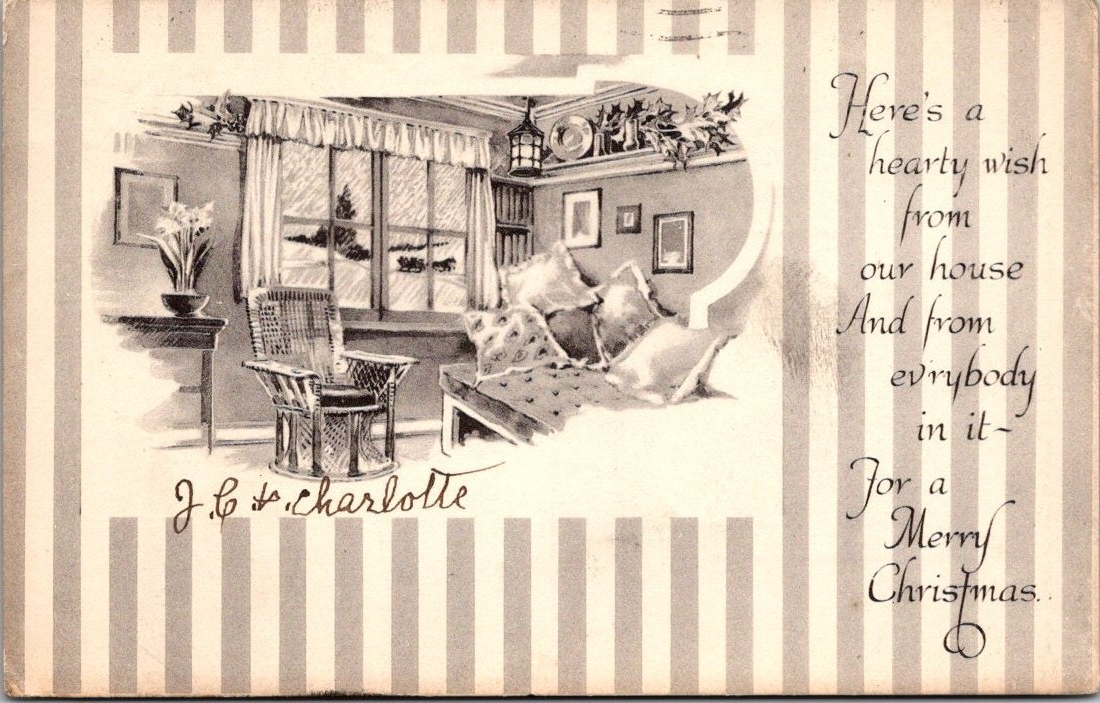 Here's a
hearty wish
from
our house
And from
ev'rybody
in it-
For a
Merry
Christmas.
J. C & Charlotte